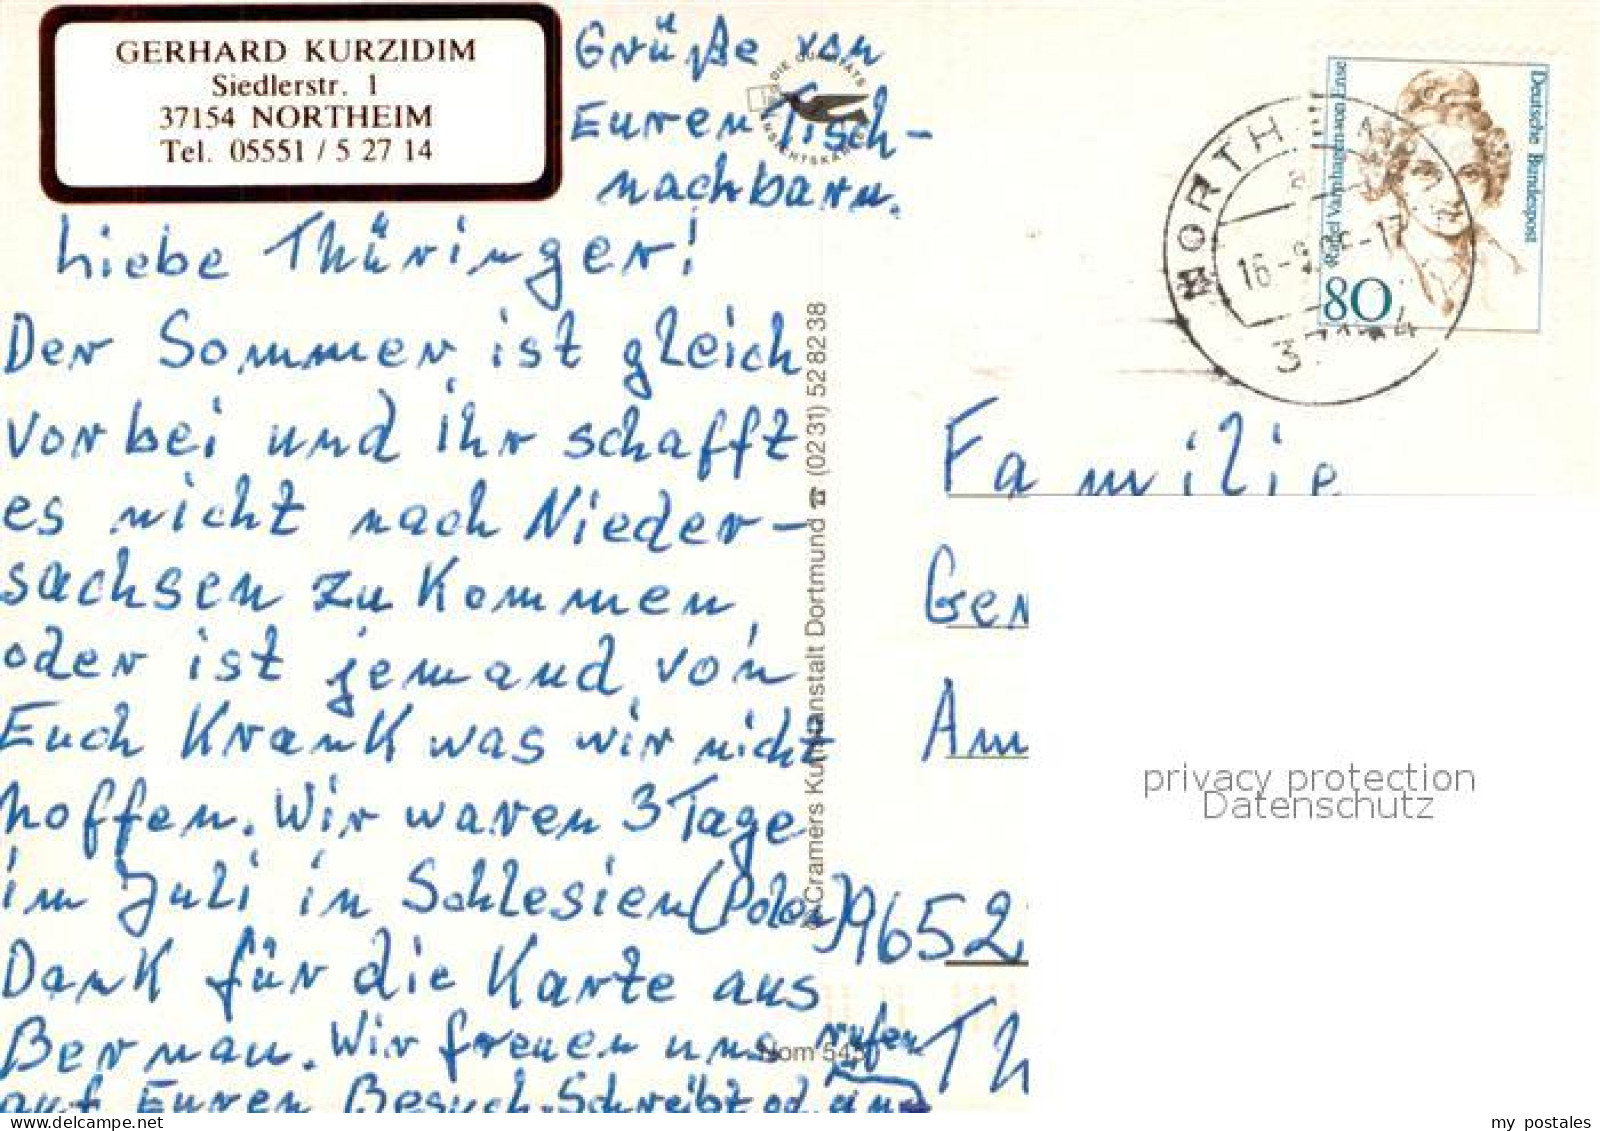 GERHARD KURZIDIM
Siedlerstr. 1
37154 NORTHEIM
Tel. 05551 / 5 27 14
Grüße von
Euren Tisch-
nachbarn.
Liebe Thüringer!
Der Sommer ist gleich
vorbei und ihr schafft
es nicht nach Nieder-
sachsen zu kommen,
oder ist jemand von
Euch krank was wir nicht
hoffen. Wir waren 3 Tage
im Juli in Schlesien (Polen)
Dank für die Karte aus
Bernau. Wir freuen uns
auf Euren Besuch. Schreibt od. rufen
DIE QUALITÄTS
ANSICHTSKARTE
Cramers Kunstanstalt Dortmund ☎ (02 31) 52 82 38
Nom 545
Deutsche Bundespost
Rahel Varnhagen von Ense
80
NORTH
16-9
Familie
Ger
Am
9652
Th
privacy protection
Datenschutz
my postales
www.delcampe.net